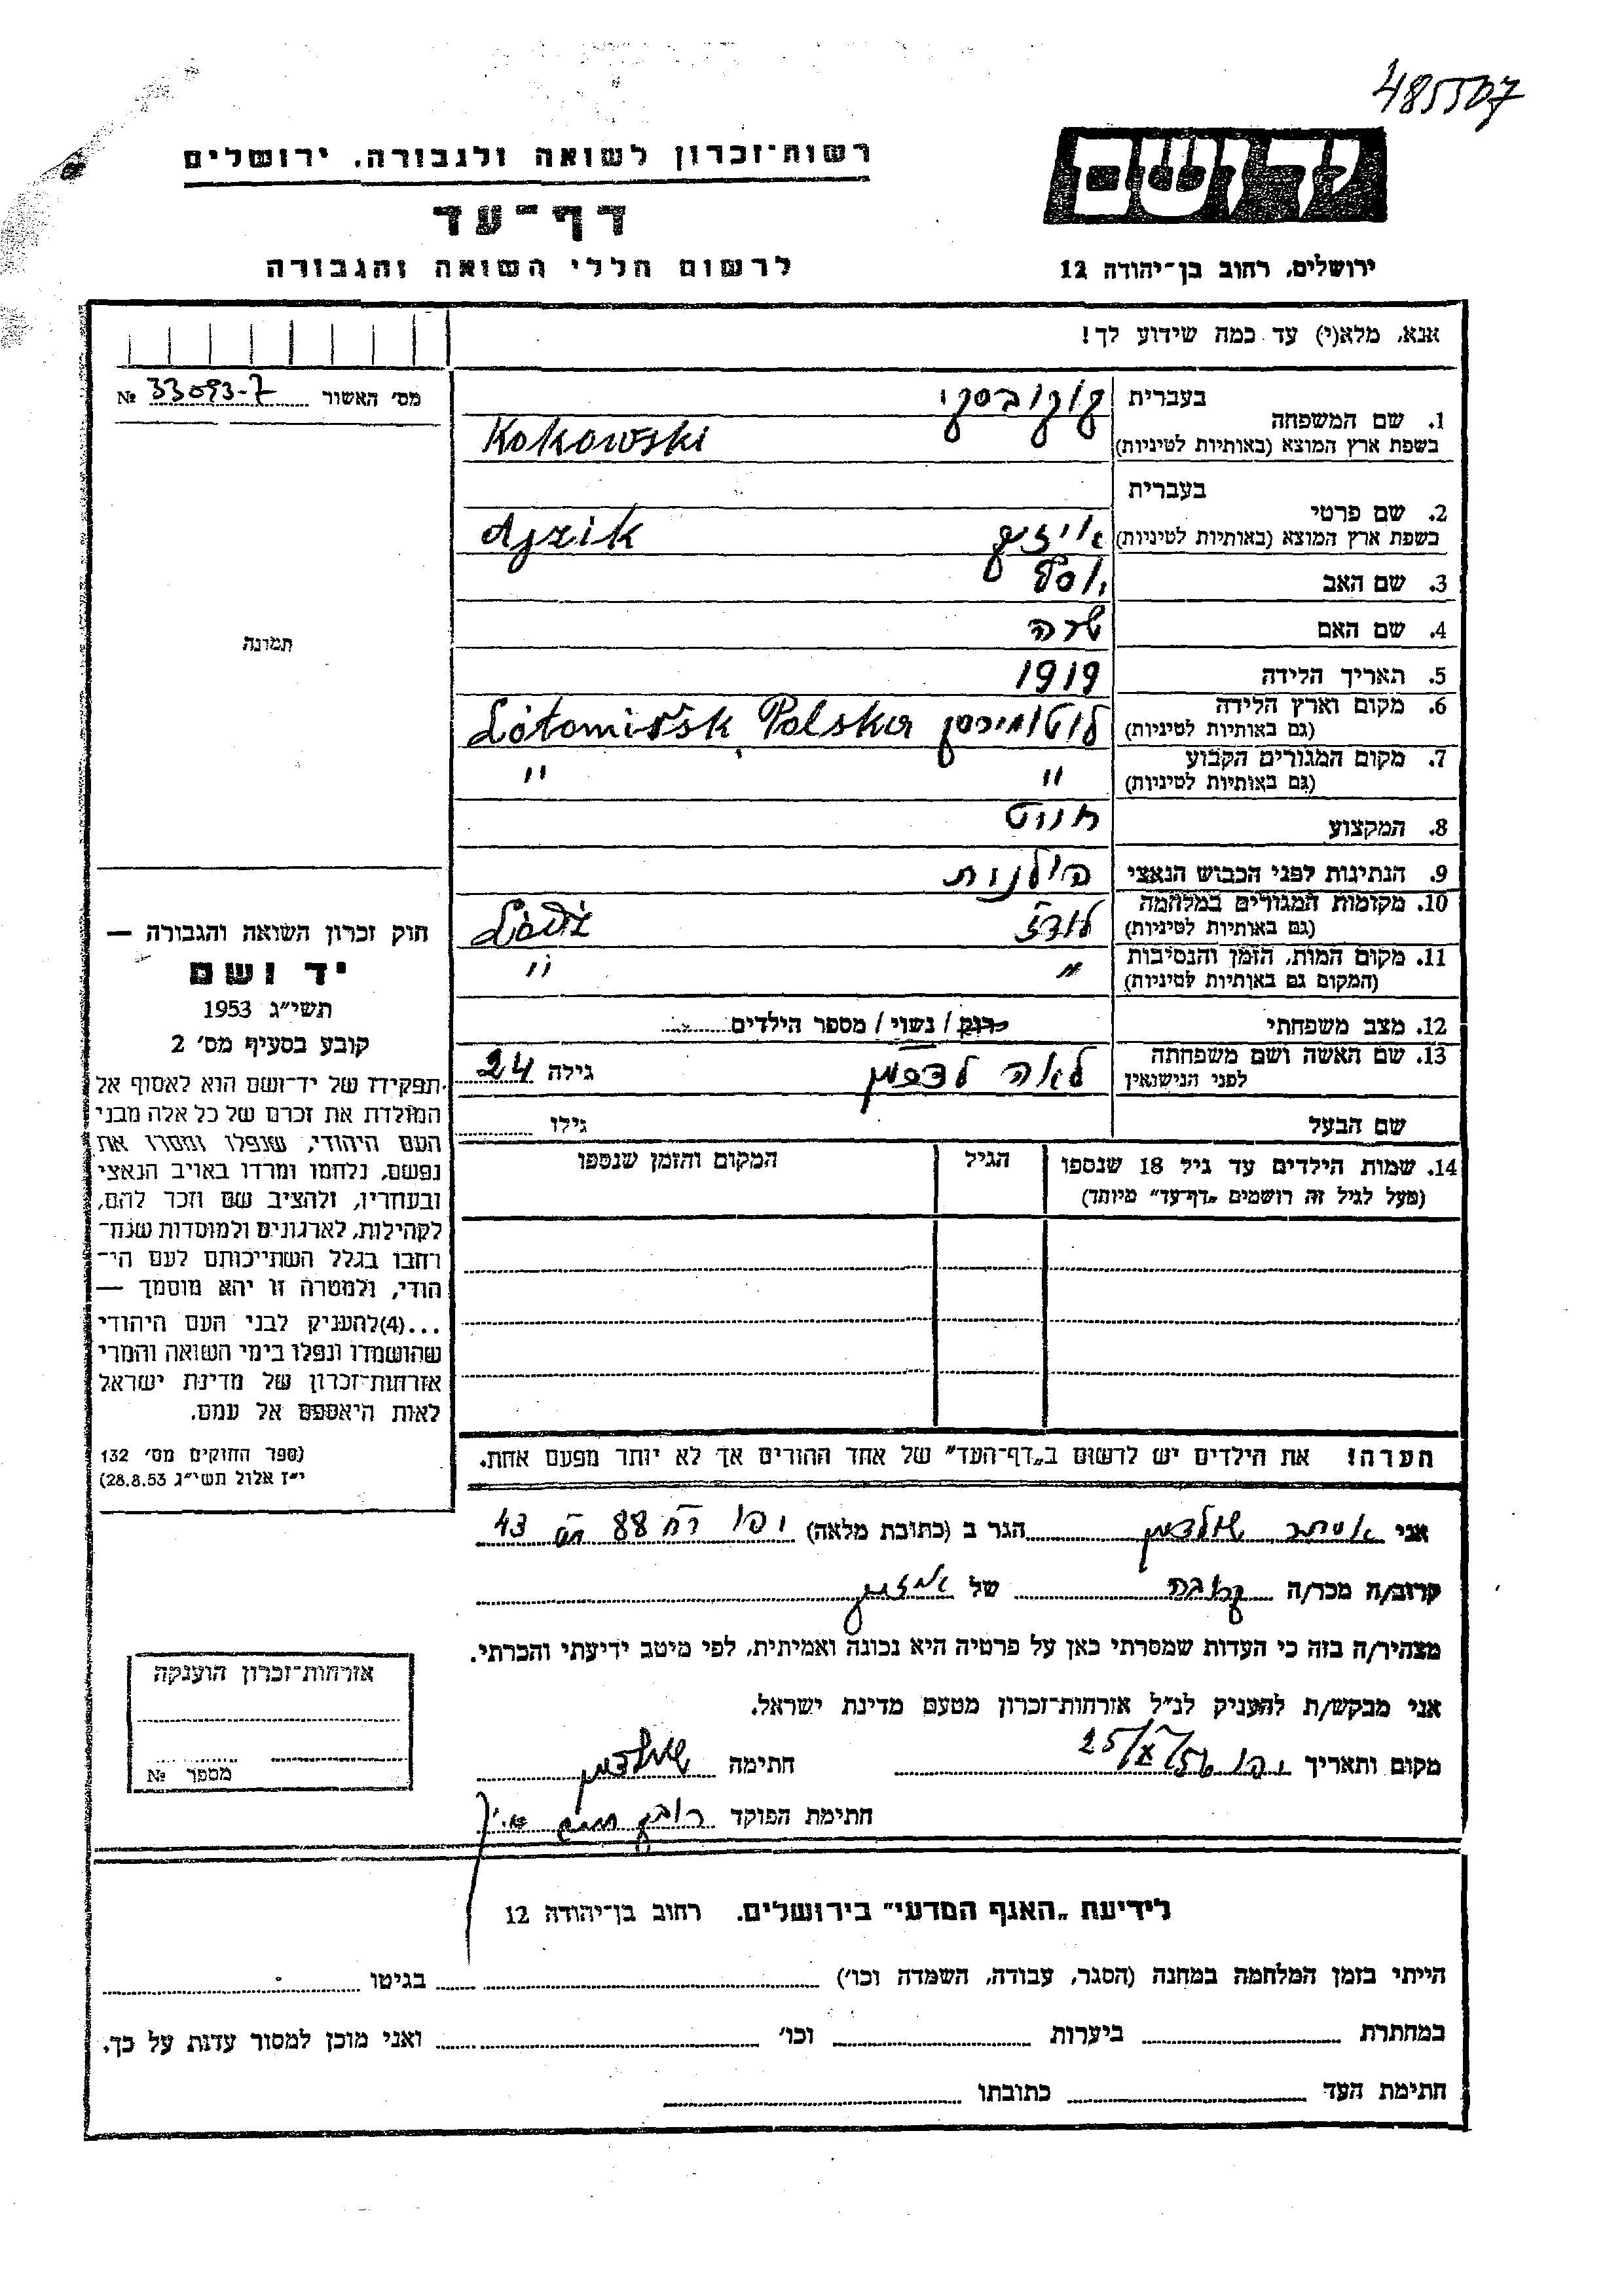 485507
יד ושם
רשות־זכרון לשואה ולגבורה, ירושלים
דף־עד
לרשום חללי השואה והגבורה
ירושלים, רחוב בן־יהודה 12
אנא, מלא(י) עד כמה שידוע לך!
מס׳ האשור 33093-7 №
תמונה
1. שם המשפחה בעברית קוקובסקי
בשפת ארץ המוצא (באותיות לטיניות) Kokowski
2. שם פרטי בעברית
בשפת ארץ המוצא (באותיות לטיניות) אייזיק Ajzik
3. שם האב יוסף
4. שם האם שרה
5. תאריך הלידה 1919
6. מקום וארץ הלידה
(גם באותיות לטיניות) לוטומירסק Lótomirsk Polska
7. מקום המגורים הקבוע
(גם באותיות לטיניות) " "
8. המקצוע חייט
9. הנתינות לפני הכבוש הנאצי פולנית
10. מקומות המגורים במלחמה
(גם באותיות לטיניות) לודז Lódź
11. מקום המות, הזמן והנסיבות
(המקום גם באותיות לטיניות) " "
12. מצב משפחתי רווק / נשוי / מספר הילדים
13. שם האשה ושם משפחתה
לפני הנישואין לאה גילה 24
שם הבעל גילו
14. שמות הילדים עד גיל 18 שנספו
(מעל לגיל זה רושמים „דף־עד״ מיוחד)
הגיל
המקום והזמן שנספו
הערה! את הילדים יש לרשום ב„דף־העד״ של אחד ההורים אך לא יותר מפעם אחת.
חוק זכרון השואה והגבורה —
יד ושם
תשי״ג 1953
קובע בסעיף מס׳ 2
תפקידו של יד־ושם הוא לאסוף אל
המולדת את זכרם של כל אלה מבני
העם היהודי, שנפלו ומסרו את
נפשם, נלחמו ומרדו באויב הנאצי
ובעוזריו, ולהציב שם וזכר להם,
לקהילות, לארגונים ולמוסדות שנח־
רבו בגלל השתייכותם לעם הי־
הודי, ולמטרה זו יהא מוסמך —
...(4)להעניק לבני העם היהודי
שהושמדו ונפלו בימי השואה והמרי
אזרחות־זכרון של מדינת ישראל
לאות היאספם אל עמם.
(ספר החוקים מס׳ 132
י״ז אלול תשי״ג 28.8.53)
אני אסתר הגר ב (כתובת מלאה) יפו רח 88 מס 43
קרוב/ה מכר/ה קרובה של
מצהיר/ה בזה כי העדות שמסרתי כאן על פרטיה היא נכונה ואמיתית, לפי מיטב ידיעתי והכרתי.
אני מבקש/ת להעניק לנ״ל אזרחות־זכרון מטעם מדינת ישראל.
מקום ותאריך יפו 25/X/56 חתימה
חתימת הפוקד
אזרחות־זכרון הוענקה
מספר №
לידיעת „האגף המדעי״ בירושלים. רחוב בן־יהודה 12
הייתי בזמן המלחמה במחנה (הסגר, עבודה, השמדה וכו׳) בגיטו
במחתרת ביערות וכו׳ ואני מוכן למסור עדות על כך.
חתימת העד כתובתו